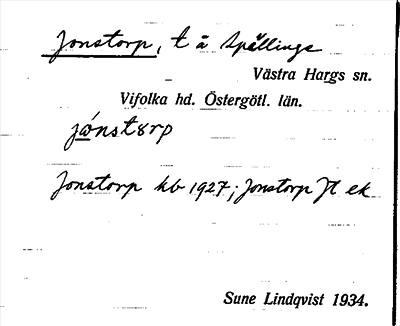 Jonstorp, t å Spållinge
Västra Hargs sn.
Vifolka hd. Östergötl. län.
jònstørp
Jonstorp kb 1927; Jonstorp Jt ek
Sune Lindqvist 1934.